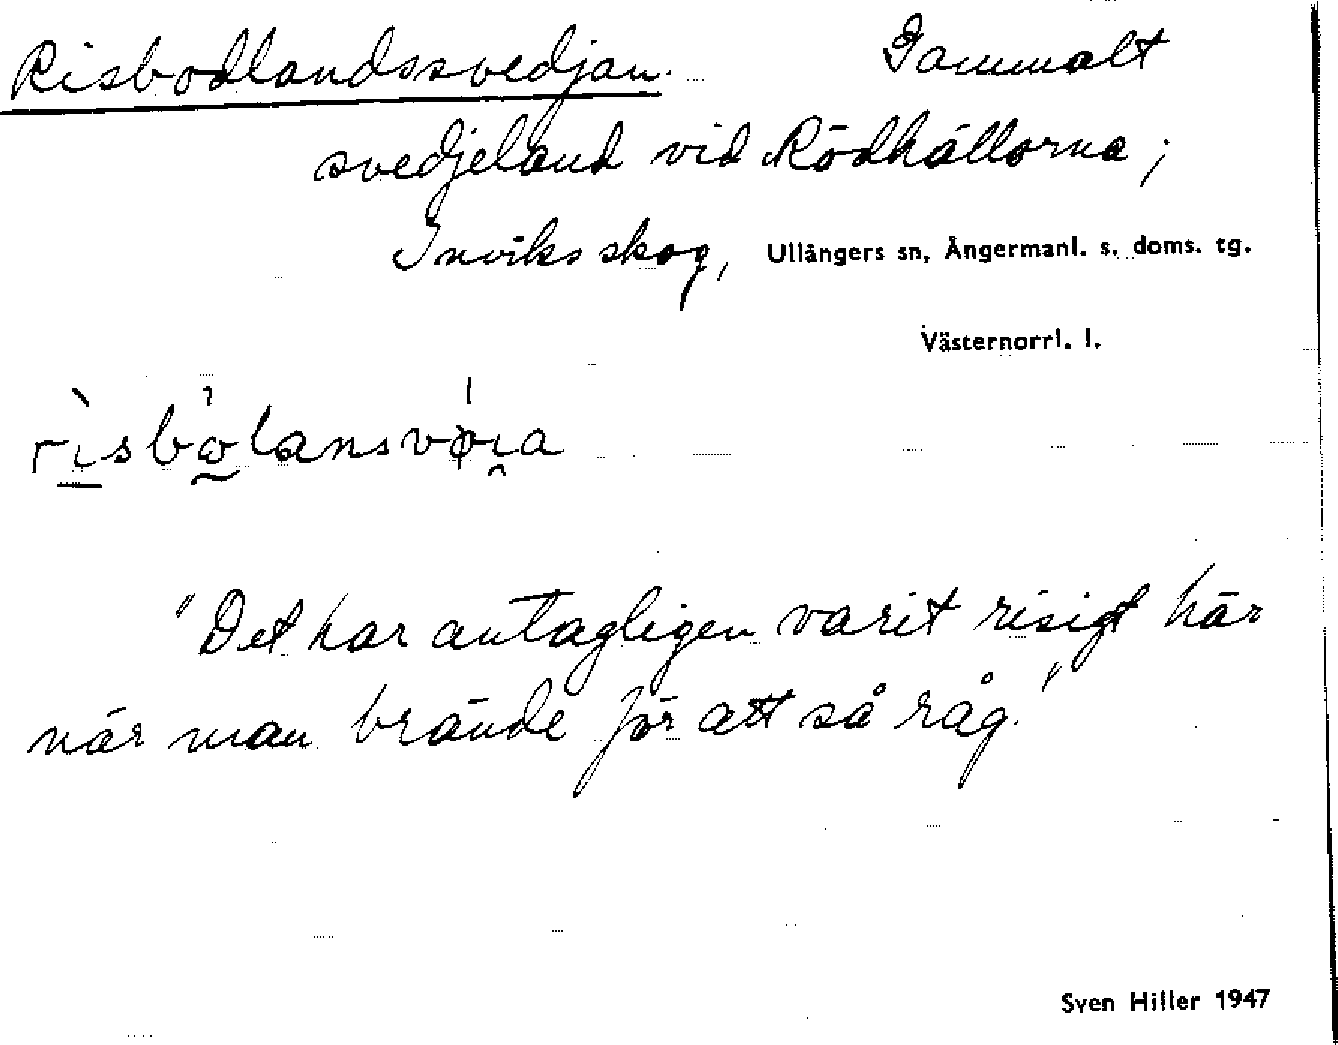 Risbodlandssvedjan. Gammalt
svedjeland vid Rödhällorna;
Inviks skog, Ullångers sn, Ångermanl. s. doms. tg.
Västernorrl. l.
"Det har antagligen varit risigt här
när man brände för att så råg."
Sven Hiller 1947